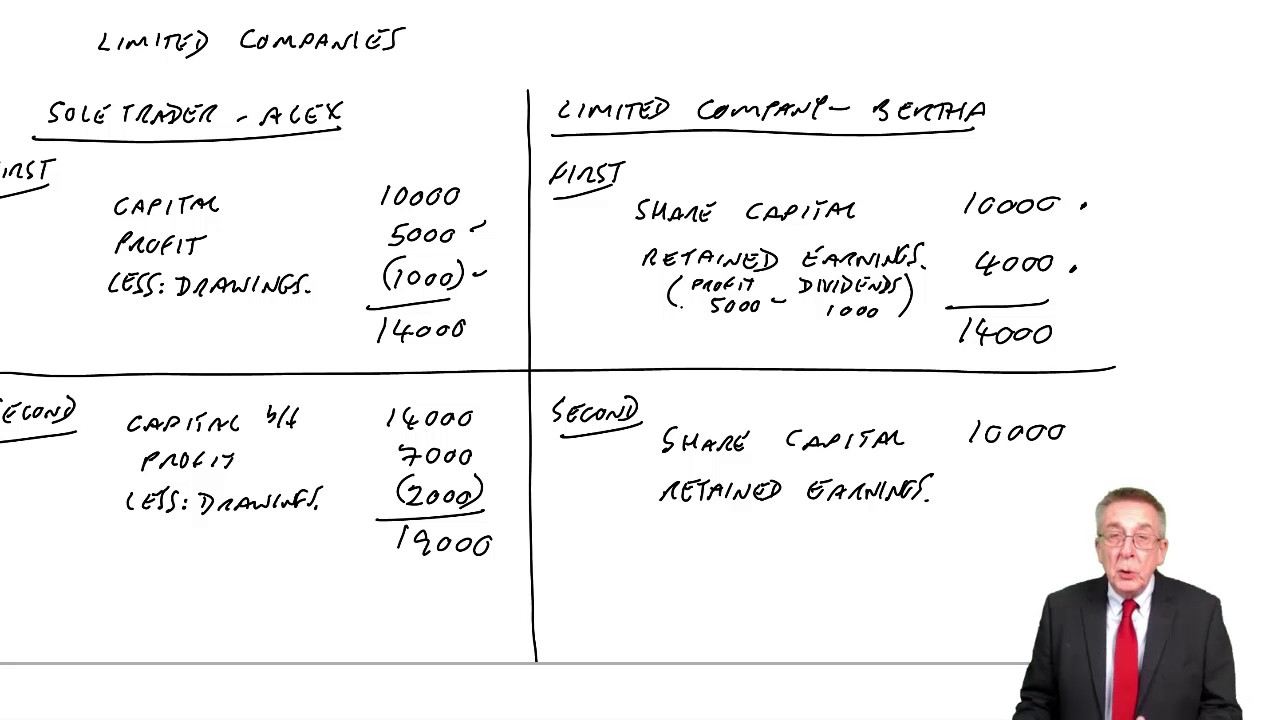 LIMITED COMPANIES
SOLE TRADER - ALEX
IRST
CAPITAL 10000
PROFIT 5000
LESS: DRAWINGS. (1000)
14000
ECOND
CAPITAL b/f 14000
PROFIT 7000
LESS: DRAWINGS. (2000)
19000
LIMITED COMPANY - BERTHA
FIRST
SHARE CAPITAL 10000 .
RETAINED EARNINGS. 4000 .
( PROFIT DIVIDENDS )
5000 - 1000
14000
SECOND
SHARE CAPITAL 10000
RETAINED EARNINGS.